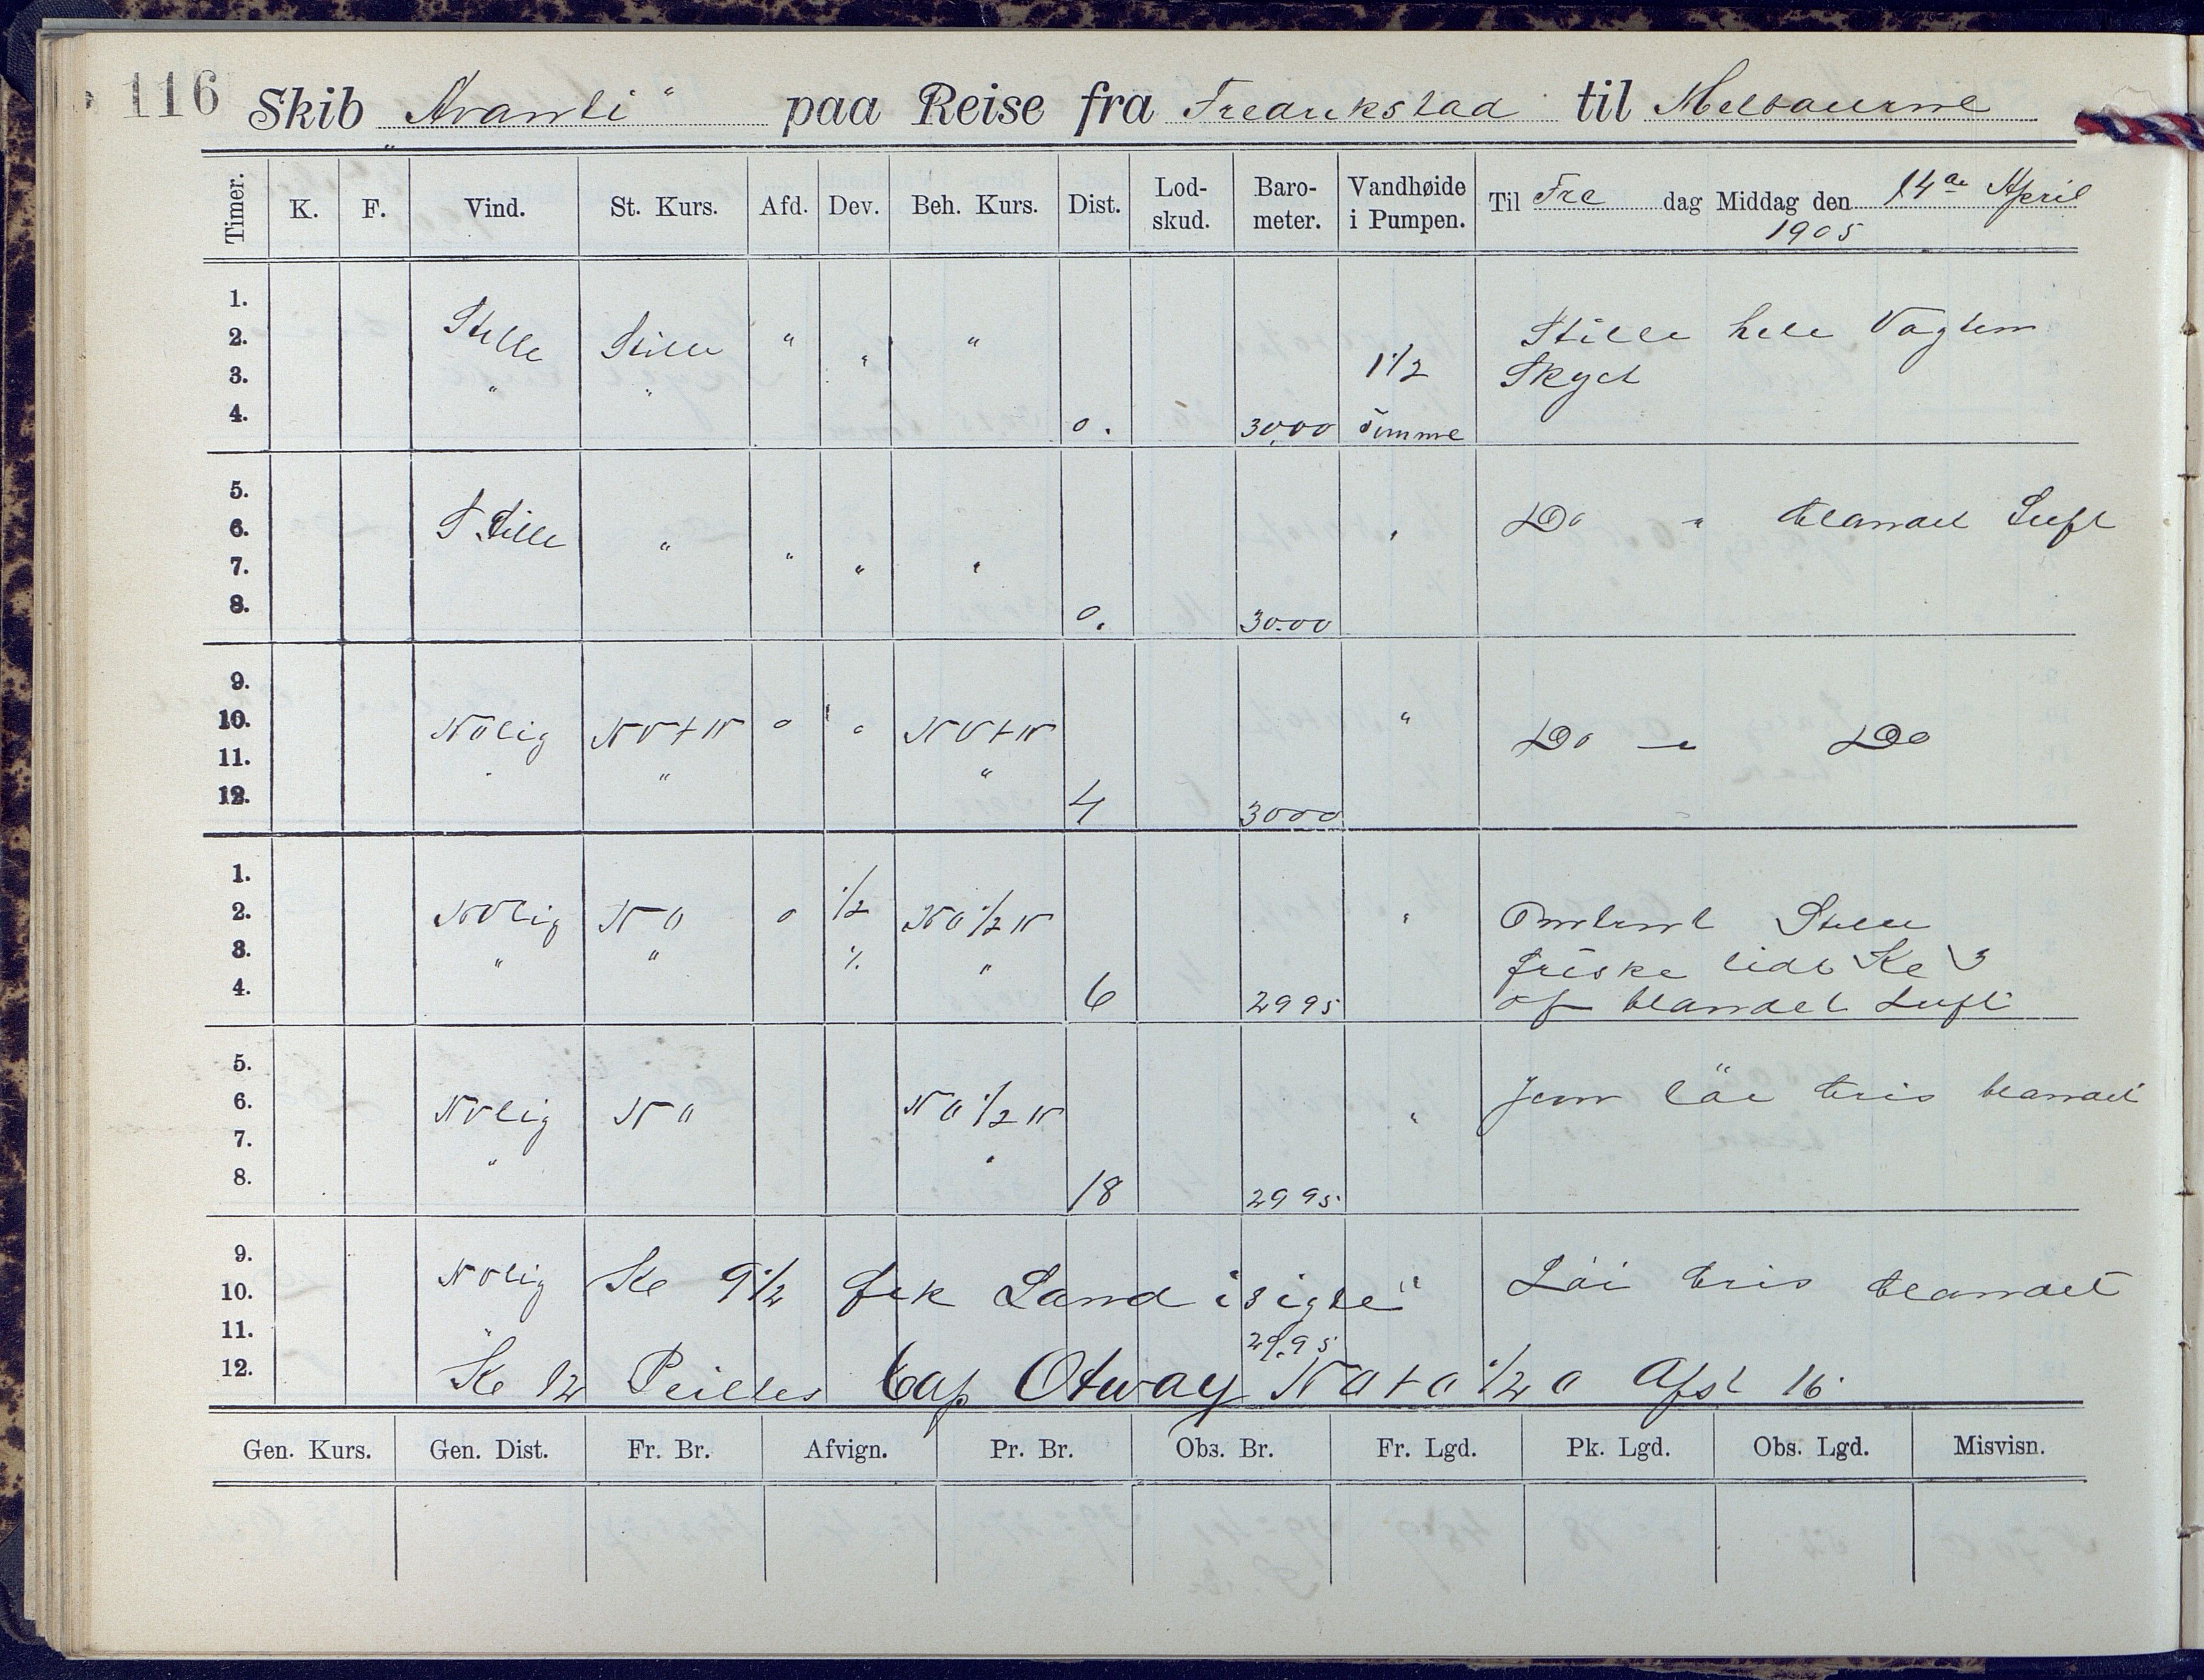 116
Skib „Avanti“ paa Reise fra Fredrikstad til Melbourne
Timer. K. F. Vind. St. Kurs. Afd. Dev. Beh. Kurs. Dist. Lod-skud. Baro-meter. Vandhøide i Pumpen. Til Fre dag Middag den 14de April
1905
1.
2. Stille Stille " " " Stille hele Vagten
3. " " 1 1/2 Skyet
4. 0. 30,00 Tomme
5.
6. Stille " " Do " blandet Luft
7. " " "
8. 0. 30.00
9.
10. NOlig NOtN 0 " NOtN " Do " Do
11. " " "
12. 4 3000
1.
2. NOlig NO 0 1/2 NO 1/2 N " Omtrent Stille
3. " " " " friske lidt Kl 3
4. 6 2995 af blandet Luft
5.
6. NOlig NO NO 1/2 N " Jevn løi bris blandet
7. " "
8. 18 2995
9.
10. NOlig Kl 9 1/2 fik Land i sigte" Løi bris blandet
11. " 29.95
12. Kl 12 Peiltes Cap Otway NOtO 1/2 O Afst 16
Gen. Kurs. Gen. Dist. Fr. Br. Afvign. Pr. Br. Obs. Br. Fr. Lgd. Pk. Lgd. Obs. Lgd. Misvisn.